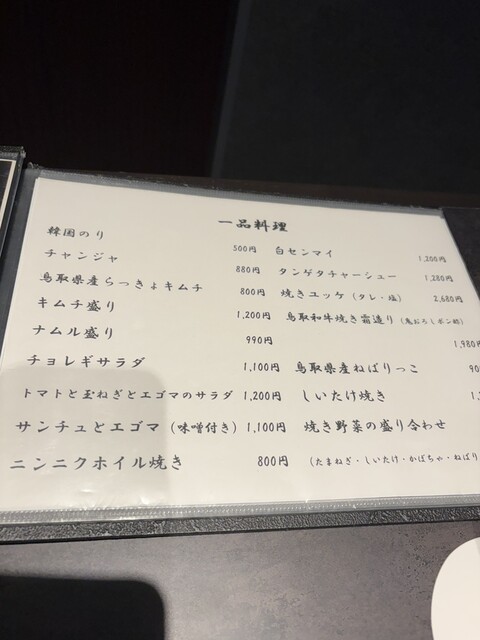 一品料理
韓国のり 500円
チャンジャ 880円
鳥取県産らっきょキムチ 800円
キムチ盛り 1,200円
ナムル盛り 990円
チョレギサラダ 1,100円
トマトと玉ねぎとエゴマのサラダ 1,200円
サンチュとエゴマ（味噌付き） 1,100円
ニンニクホイル焼き 800円
白センマイ 1,200円
タンゲタチャーシュー 1,280円
焼きユッケ（タレ・塩） 2,680円
鳥取和牛焼き霜造り（鬼おろしポン酢）
1,980円
鳥取県産ねばりっこ 90
しいたけ焼き 1,
焼き野菜の盛り合わせ
（たまねぎ・しいたけ・かぼちゃ・ねばり